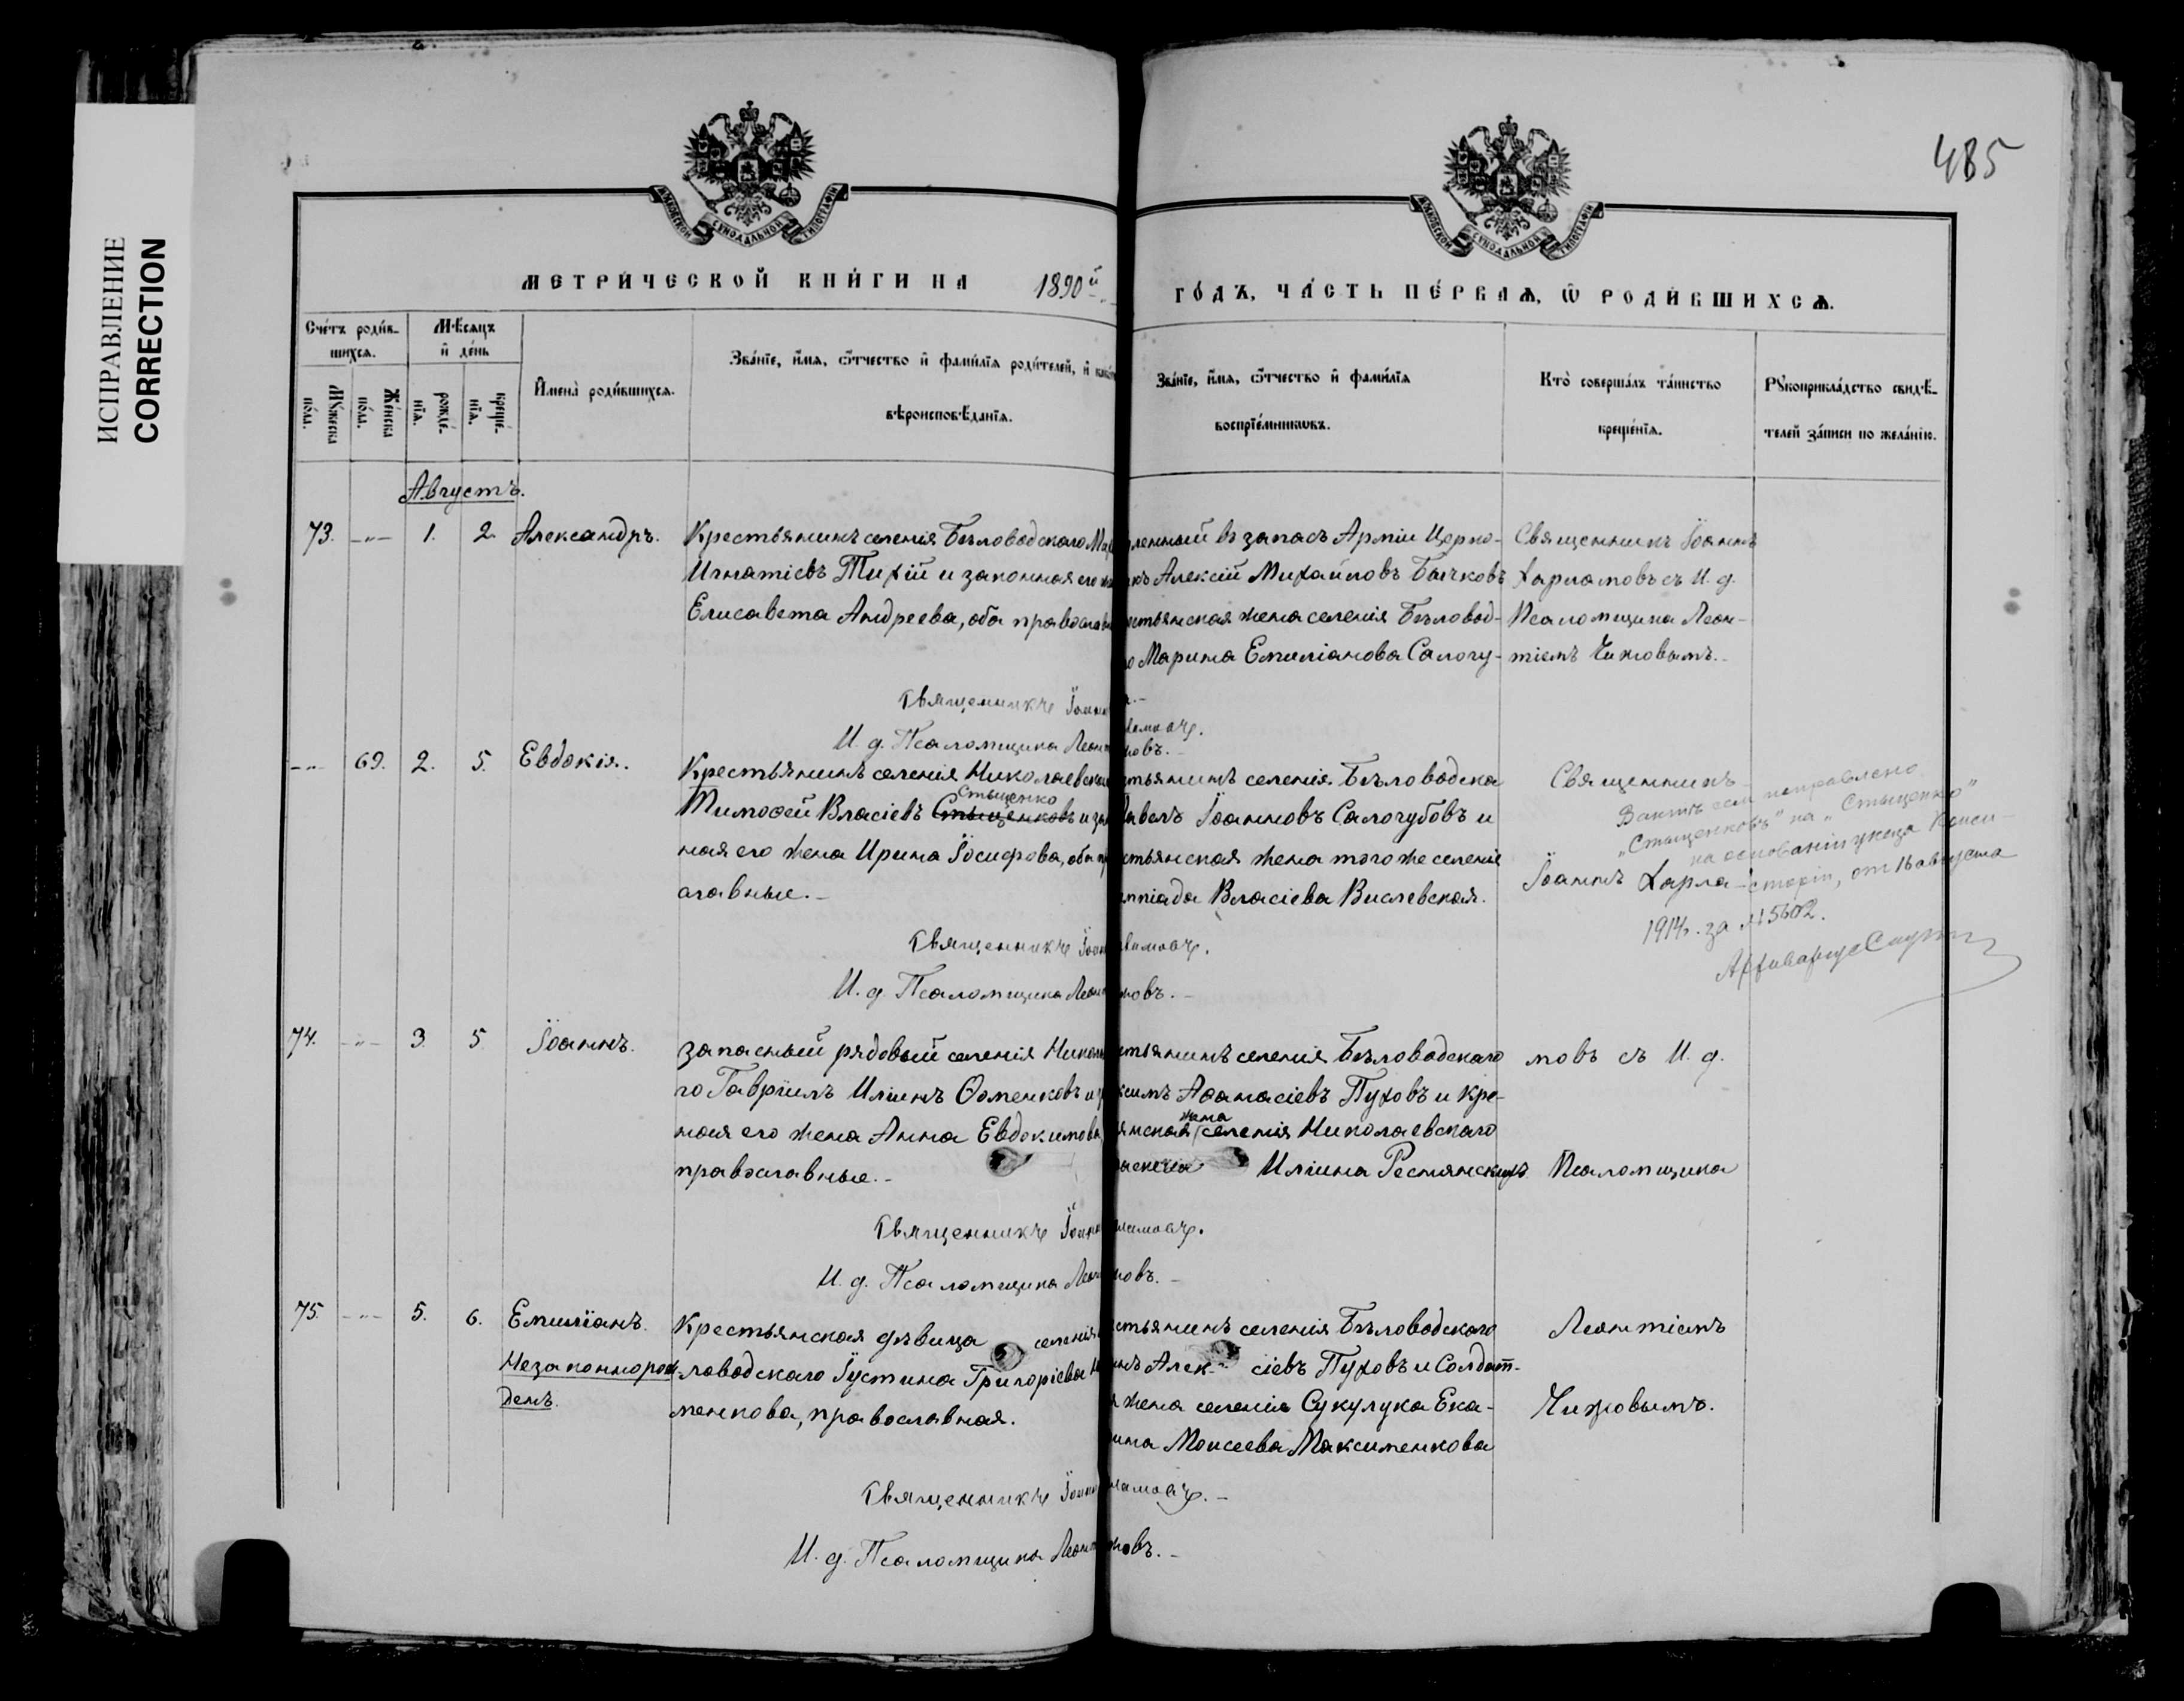 ИСПРАВЛЕНИЕ
CORRECTION
485
МЕТРИЧЕСКОЙ КНИГИ НА 1890й
ГОДЪ, ЧАСТЬ ПЕРВАѦ, Ѿ РОДИВШИХСѦ.
Счетъ родив-
шихсѧ.
Мѣсѧцъ
и день
Мꙋжеска
пола.
Женска
пола.
рожде-
нїѧ.
креще-
нїѧ.
Имена родившихсѧ.
Званїе, имѧ, ѿчество и фамилїѧ родителей, и
вѣроисповѣданїѧ.
Званїе, имѧ, ѿчество и фамилїѧ
воспрїемникѡвъ.
Кто совершалъ таинство
крещенїѧ.
Рꙋкоприкладство свидѣ-
телей записи по желанїю.
Августъ.
73. -"- 1. 2. Александръ.
Крестьянинъ селенія Бѣловодскаго
Игнатіевъ Тихій и законная его
Елисавета Андреева, оба
ленный въ запасъ Арміи Церко-
Алексій Михайловъ Бычковъ
жена селенія Бѣловод-
Марина Емиліанова Салогу-
Священникъ Іоаннъ
Харламовъ съ И. д.
Псаломщика Леон-
тіемъ Чижовымъ.
Священникъ
И. д. Псаломщика
-"- 69. 2. 5. Евдокія.
Крестьянинъ селенія
Стыценко
Тимоѳей Власіевъ Стыценковъ и
ная его жена Ирина Іосифова, оба
славные.-
селенія Бѣловодска
Іоанновъ Салогубовъ и
жена того же селенія
Власіева Вислевская.
Священникъ
Іоаннъ Харла-
исправлено
"Стыценковъ" на "Стыценко"
на основаніи указа Конси-
сторіи, от 16 августа
1914г. за № 5602.
Священникъ
И. д. Псаломщика
74. -"- 3. 5. Іоаннъ.
запасный рядовый селенія
го Гавріилъ Иліинъ Ѳоменковъ и
ная его жена Анна Евдокимова
православные.-
селенія Бѣловодскаго
Аѳанасіевъ Пуховъ и Кре-
жена
селенія Николаевскаго
Иліина
мовъ съ И. д.
Псаломщика
Священникъ
И. д. Псаломщика
75. -"- 5. 6. Емиліанъ.
Незаконнорож-
денъ.
Крестьянская дѣвица селенія
ловодскаго Іустина Григоріева
менкова, православная.
селенія Бѣловодскаго
Алек- сіевъ Пуховъ и Солдат-
жена селенія Сукулука Ека-
Моисеева Максименкова
Леонтіемъ
Чижовымъ.
Священникъ
И. д. Псаломщика